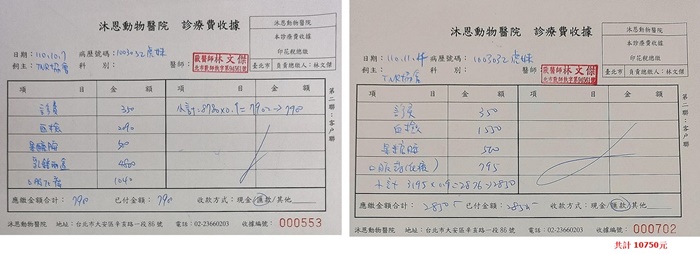 沐恩動物醫院 診療費收據
沐恩動物醫院
本診療費收據
印花稅總繳
臺北市 負責總繳人:林文傑
日期:110.10.7 病歷號碼:1003032虎妹
飼主:TNR協會 科 別: 醫師:
獸醫師林文傑
項 目 金 額 項 目 金 額
診費 350
血檢 2090
4800
1040
應繳金額合計: 已付金額: 收款方式:現金/匯款/其他
沐恩動物醫院 地址:台北市大安區辛亥路一段86號 電話:02-23660203 收據編號:000553
第二聯:客戶聯
沐恩動物醫院 診療費收據
沐恩動物醫院
本診療費收據
印花稅總繳
臺北市 負責總繳人:林文傑
病歷號碼:1003032虎妹
飼主:TNR協會 科 別: 醫師:
獸醫師林文傑
項 目 金 額 項 目 金 額
診費 350
血檢 1550
500
795
小計 3195×0.9=2876→2850
應繳金額合計:2850 已付金額:2850 收款方式:現金/匯款/其他
沐恩動物醫院 地址:台北市大安區辛亥路一段86號 電話:02-23660203 收據編號:000702
第二聯:客戶聯
共計 10750元